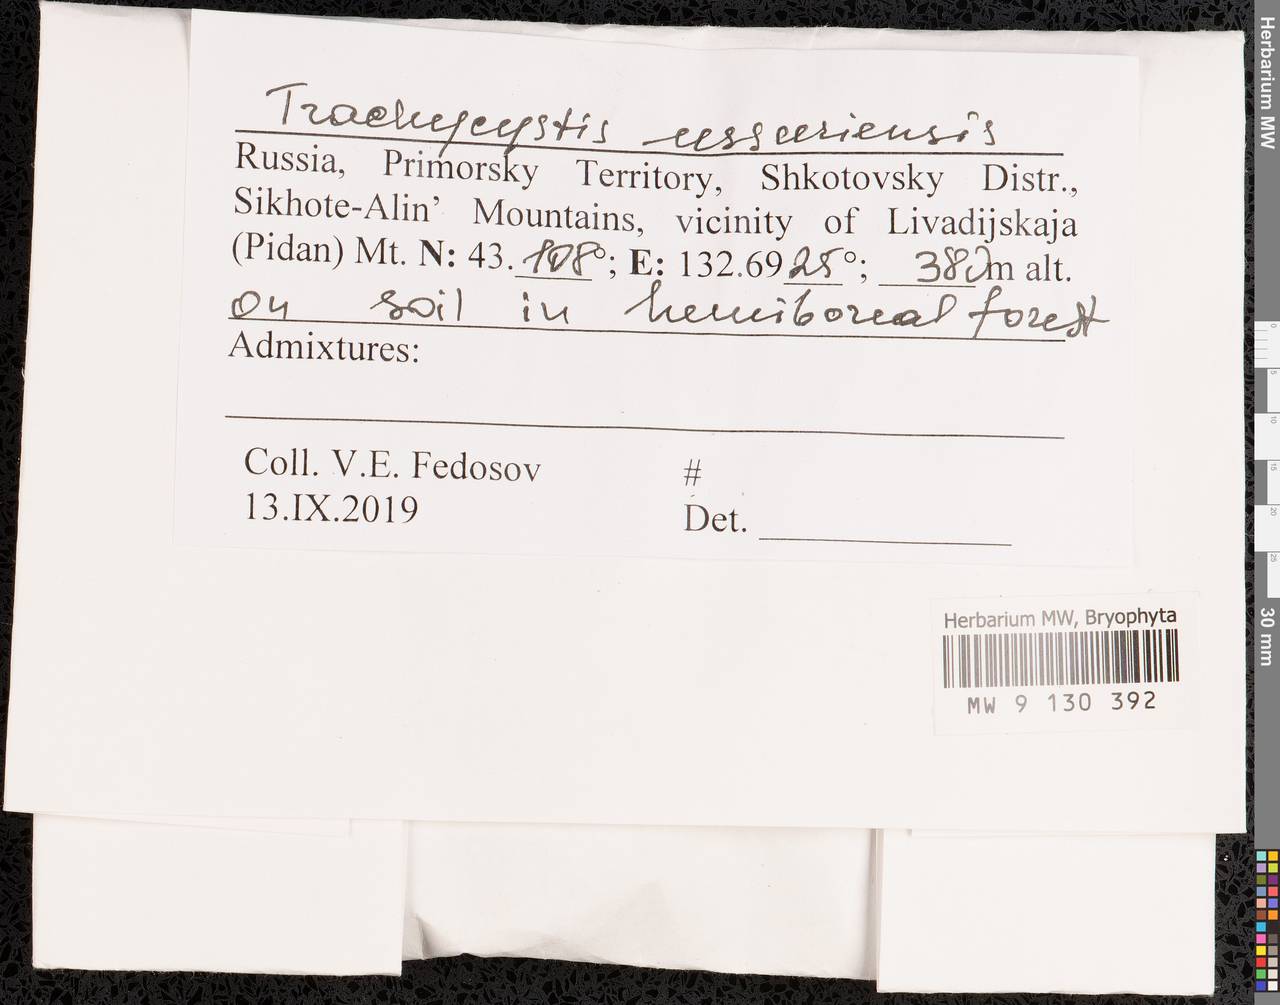 Trachycystis ussuriensis
Russia, Primorsky Territory, Shkotovsky Distr.,
Sikhote-Alin’ Mountains, vicinity of Livadijskaja
(Pidan) Mt. N: 43.108°; E: 132.6925°; 380m alt.
on soil in hemiboreal forest
Admixtures:
Coll. V.E. Fedosov #
13.IX.2019 Det.
Herbarium MW, Bryophyta
MW 9 130 392
Herbarium MW
0
5
10
15
20
25
30 mm